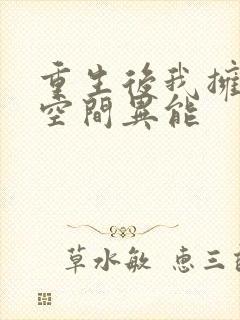 重生後我擁
空間異能
草水敏 惠三